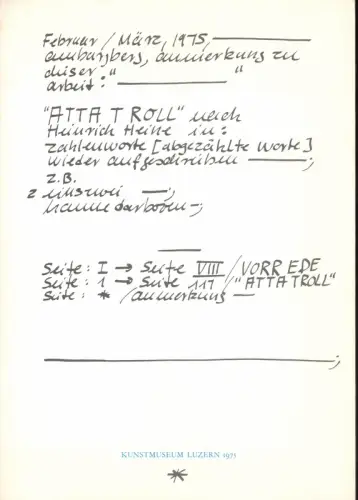 Februar/März, 1975, ———
am burgberg, anmerkung zu
dieser "                    "
arbeit: ———
"ATTA TROLL" nach
Heinrich Heine in:
zahlenworte [abgezählte worte]
wieder aufgeschrieben ———;
z.B.
2 einszwei ——;
hanne darboven —;
Seite: I → Seite VIII / VORREDE
Seite: 1 → Seite 117 / "ATTA TROLL"
Seite: * / anmerkung —
KUNSTMUSEUM LUZERN 1975
*